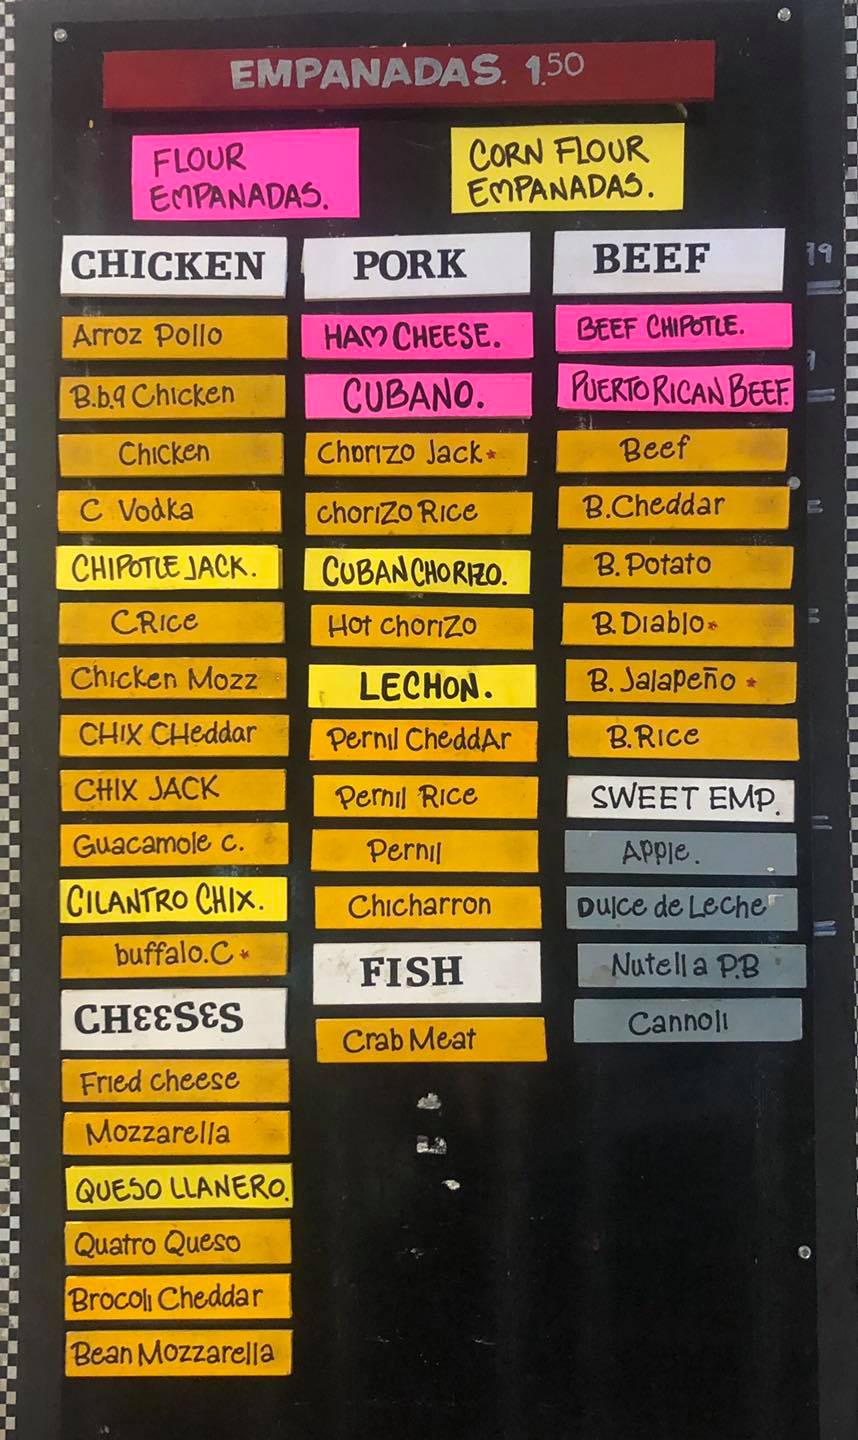 EMPANADAS. 1.50
FLOUR
EMPANADAS.
CORN FLOUR
EMPANADAS.
CHICKEN
Arroz Pollo
B.b.q Chicken
Chicken
C Vodka
CHIPOTLE JACK.
C.Rice
Chicken Mozz
CHIX CHeddar
CHIX JACK
Guacamole c.
CILANTRO CHIX.
buffalo.C *
CHEESES
Fried cheese
Mozzarella
QUESO LLANERO.
Quatro Queso
Brocoli Cheddar
Bean Mozzarella
PORK
HAM CHEESE.
CUBANO.
Chorizo Jack *
chorizo Rice
CUBAN CHORIZO.
Hot chorizo
LECHON.
Pernil CheddAr
Pernil Rice
Pernil
Chicharron
FISH
Crab Meat
BEEF
BEEF CHIPOTLE.
PUERTO RICAN BEEF.
Beef
B.Cheddar
B. Potato
B. Diablo *
B. Jalapeño *
B.Rice
SWEET EMP.
Apple.
Dulce de Leche
Nutella P.B
Cannoli